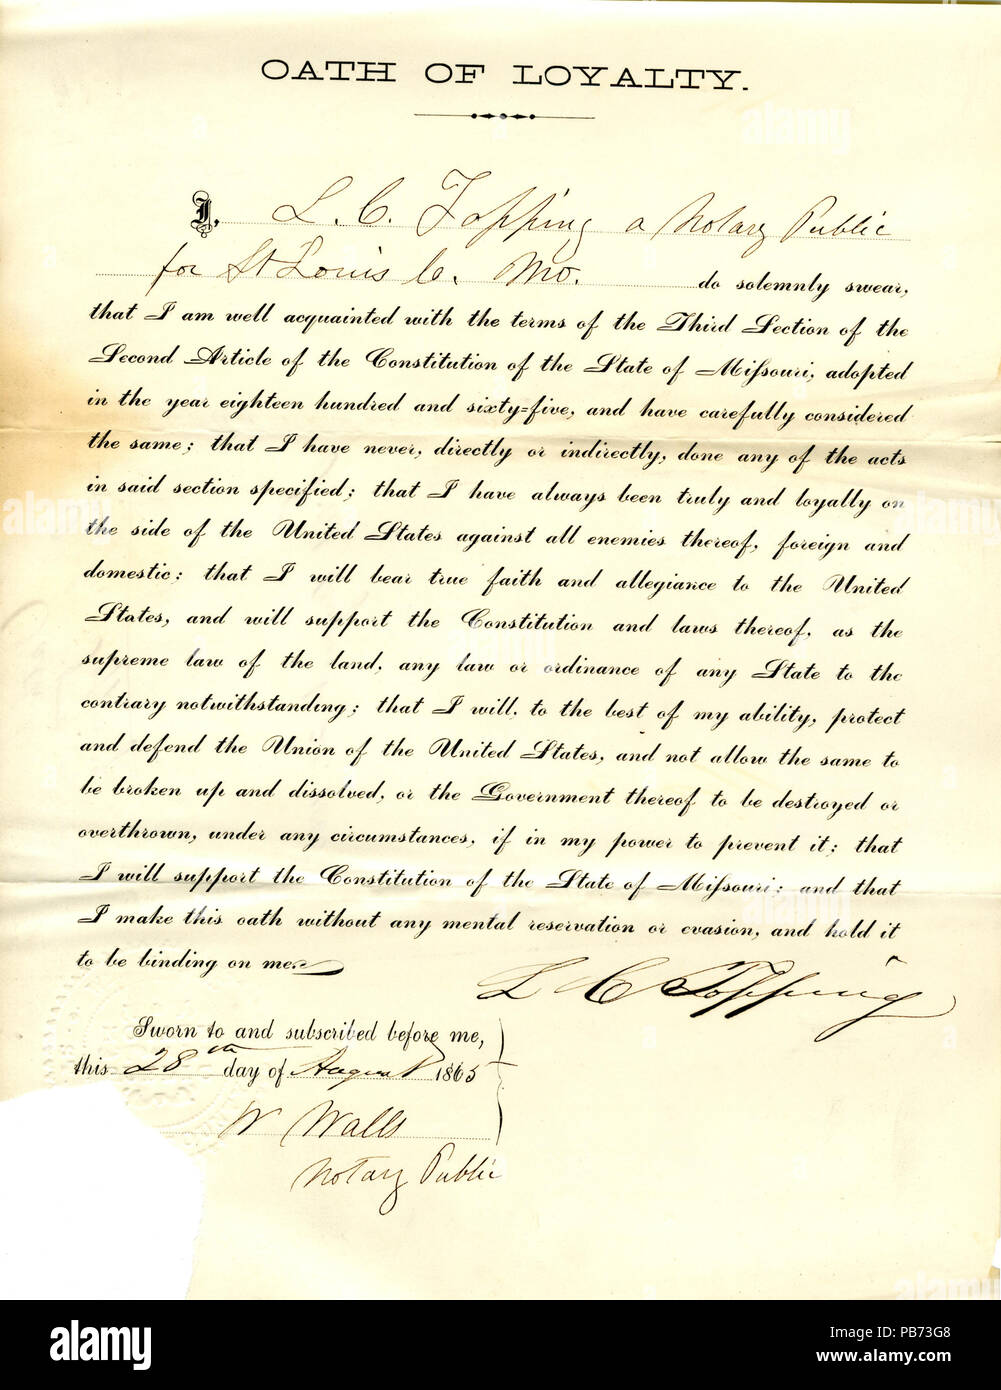 OATH OF LOYALTY.
I, L. C. Topping a Notary Public
for St Louis C. Mo. do solemnly swear,
that I am well acquainted with the terms of the Third Section of the
Second Article of the Constitution of the State of Missouri, adopted
in the year eighteen hundred and sixty-five, and have carefully considered
the same; that I have never, directly or indirectly, done any of the acts
in said section specified; that I have always been truly and loyally on
the side of the United States against all enemies thereof, foreign and
domestic: that I will bear true faith and allegiance to the United
States, and will support the Constitution and laws thereof, as the
supreme law of the land, any law or ordinance of any State to the
contrary notwithstanding; that I will, to the best of my ability, protect
and defend the Union of the United States, and not allow the same to
be broken up and dissolved, or the Government thereof to be destroyed or
overthrown, under any circumstances, if in my power to prevent it; that
I will support the Constitution of the State of Missouri: and that
I make this oath without any mental reservation or evasion, and hold it
to be binding on me.
L C Topping
Sworn to and subscribed before me,
this 28th day of August 1865
W Walls
Notary Public
alamy
Image ID: PB73G8
www.alamy.com